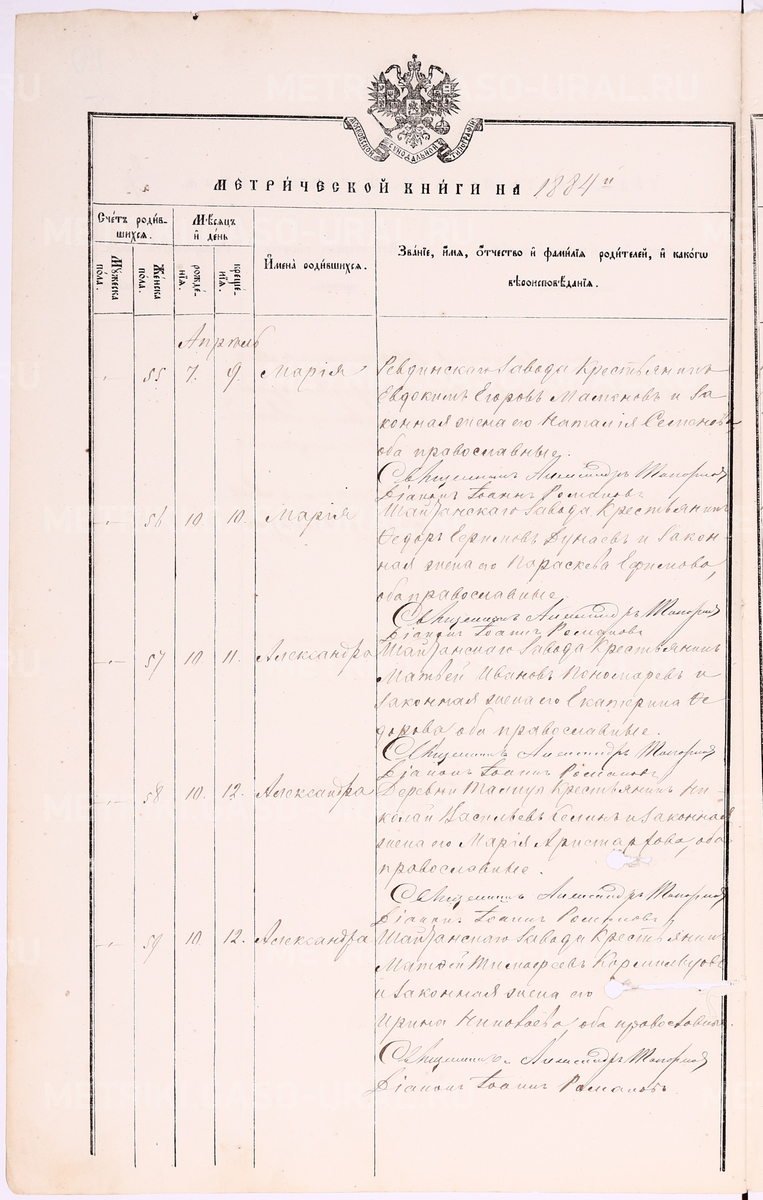 МЕТРИ́ЧЕСКОЙ КНИ́ГИ НА 1884й
Сче́тъ роди́в-
шихся.
Мѣ́сяцъ
и҆ де́нь
И҆мена̀ роди́вшихся.
Зва́нїе, и҆́мѧ, ѻ҆́тчество и҆ фами́лїѧ роди́телей, и҆ како́гѡ
вѣроисповѣ́данїѧ.
Му́жеска
по́ла.
Же́нска
по́ла.
рожде́-
нїѧ.
креще́-
нїѧ.
Апрѣль
55 7. 9. Марія Ревдинскаго завода крестьянинъ
Евдокимъ Егоровъ Мамоновъ и за
конная жена его Наталія Семенова
оба православные.
Священникъ Александръ Топорков
Діаконъ Іоаннъ Романовъ
56 10. 10. Марія Шайтанскаго завода крестьянинъ
Ѳедоръ Ефимовъ Дунаевъ и закон-
ная жена его Параскева Ефимова,
оба православные
Священникъ Александръ Топорков
Діаконъ Іоаннъ Романовъ
57 10 11. Александра Шайтанскаго завода крестьянинъ
Матвей Ивановъ Пономаревъ и
законная жена его Екатерина Ѳе
дорова, оба православные.
Священникъ Александръ Топорков
Діаконъ Іоаннъ Романовъ
58 10. 12. Александра Деревни Талица крестьянинъ Ни-
колай Васильевъ Селинъ и законная
жена его Марія Аристархова, оба
православные.
Священникъ Александръ Топорков
Діаконъ Іоаннъ Романовъ
59 10. 12. Александра Шайтанскаго завода крестьянинъ
Матвей Тимофеевъ Кормильцовъ
и законная жена его
Ирина Николаева, оба православные.
Священникъ Александръ Топорков
Діаконъ Іоаннъ Романовъ